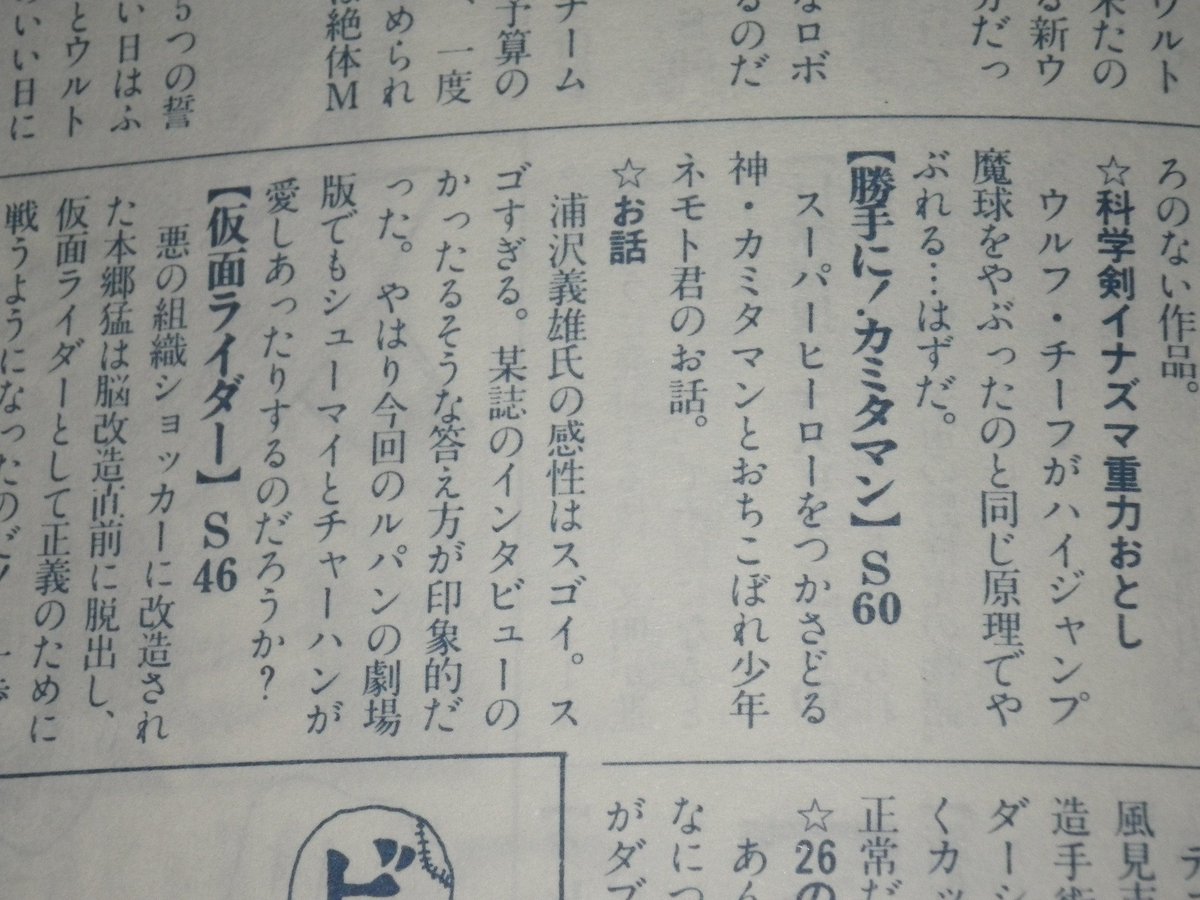 ウルト
来たの
る新ウ
カだっ
なロボ
るのだ
チーム
予算の
、一度
められ
は絶体M
5つの誓
い日はふ
とウルト
いい日に
ろのない作品。
☆科学剣イナズマ重力おとし
ウルフ・チーフがハイジャンプ
魔球をやぶったのと同じ原理でや
ぶれる…はずだ。
【勝手に!カミタマン】S60
スーパーヒーローをつかさどる
神・カミタマンとおちこぼれ少年
ネモト君のお話。
☆お話
浦沢義雄氏の感性はスゴイ。ス
ゴすぎる。某誌のインタビューの
かったるそうな答え方が印象的だ
った。やはり今回のルパンの劇場
版でもシューマイとチャーハンが
愛しあったりするのだろうか?
【仮面ライダー】S46
悪の組織ショッカーに改造され
た本郷猛は脳改造直前に脱出し、
仮面ライダーとして正義のために
戦うようになったのだ!
風見志
造手術
ダーシ
くカッ
正常だ
☆26の
あん
なにつ
がダブ
ビ